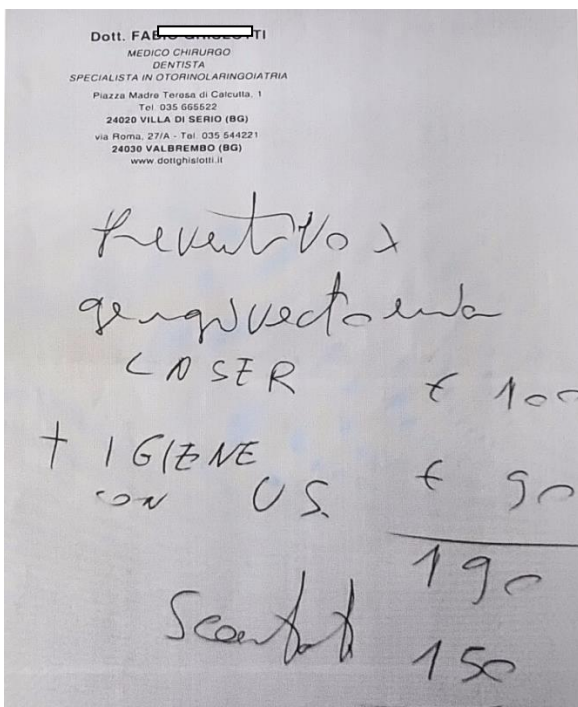 Dott. FABIO TI
MEDICO CHIRURGO
DENTISTA
SPECIALISTA IN OTORINOLARINGOIATRIA
Piazza Madre Teresa di Calcutta, 1
Tel. 035 665522
24020 VILLA DI SERIO (BG)
via Roma, 27/A - Tel. 035 544221
24030 VALBREMBO (BG)
www.dottghislotti.it
Preventivo x
gengivectomia
LASER € 100
+ IGIENE
CON US. € 90
190
Scontati 150